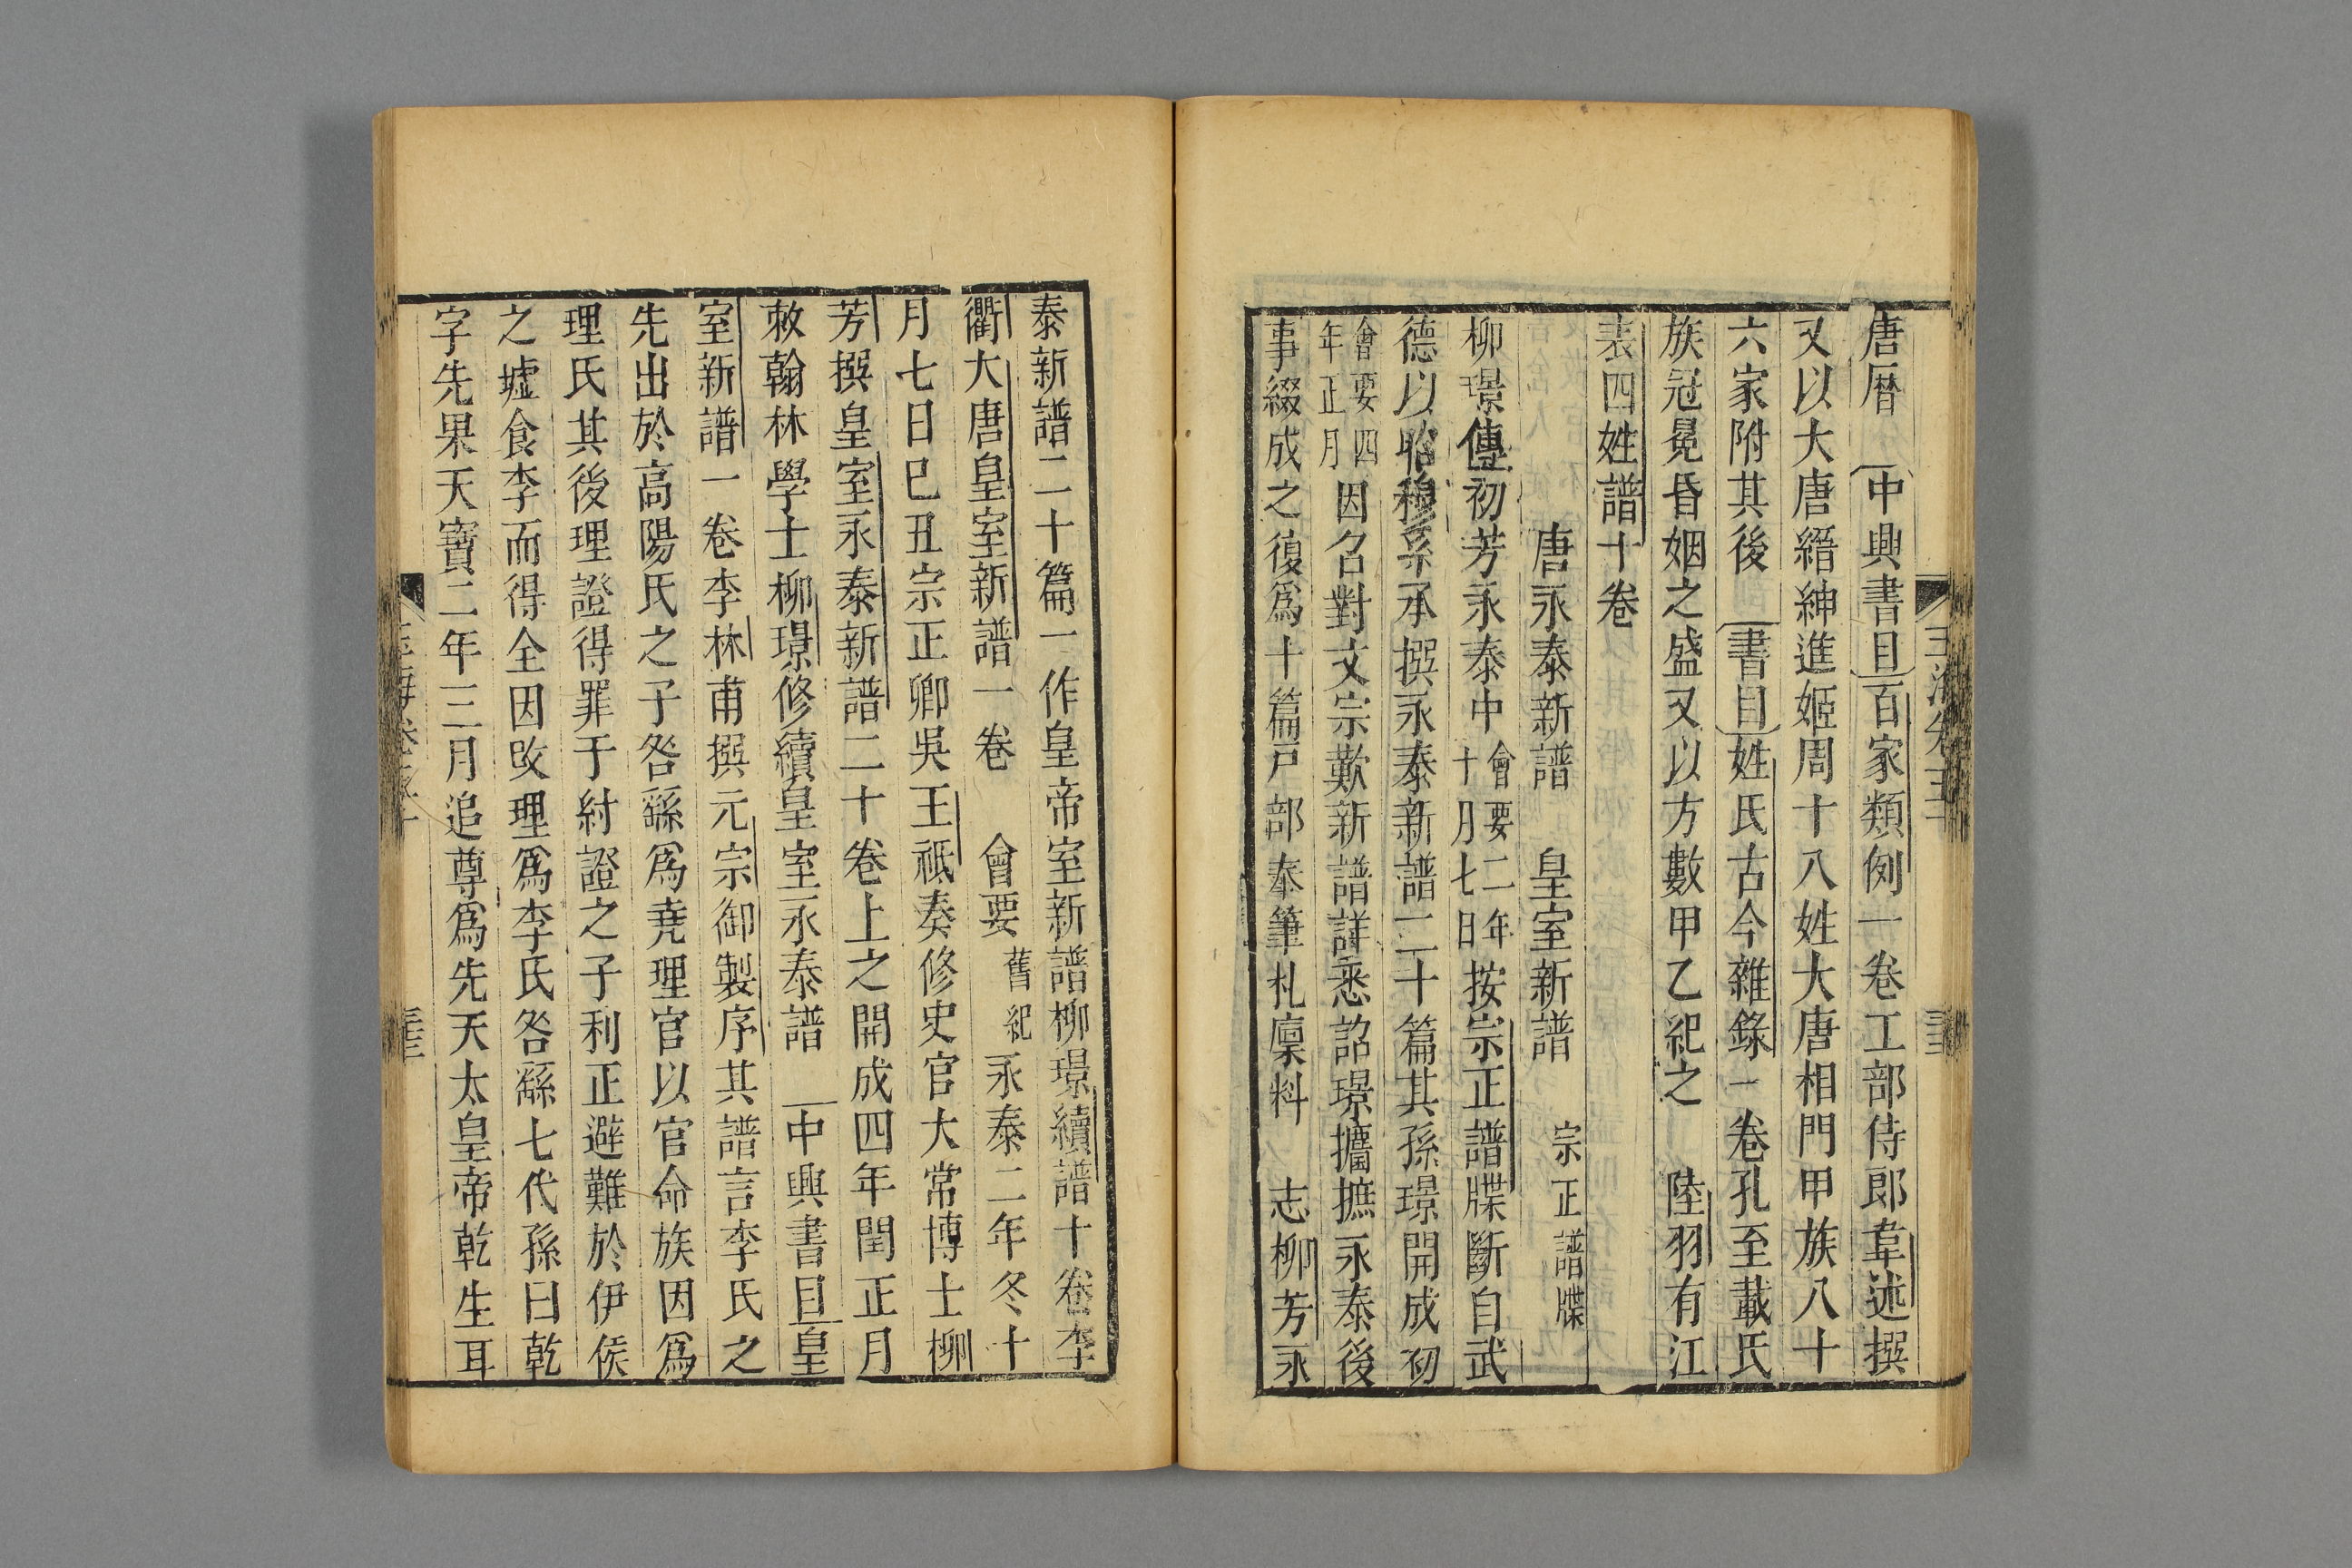 唐曆　中興書目百家類例一卷工部侍郎韋述撰
又以大唐縉紳進姬周十八姓大唐相門甲族八十
六家附其後　書目姓氏古今雜錄一卷孔至載氏
族冠冕昏姻之盛又以方數甲乙紀之　陸羽有江
表四姓譜十卷
唐永泰新譜　皇室新譜　宗正譜牒
柳璟傳初芳永泰中會要二年十月七日按宗正譜牒斷自武
德以昭穆系承撰永泰新譜二十篇其孫璟開成初
會要四年正月因召對文宗歎新譜詳悉詔璟攟摭永泰後
事綴成之復爲十篇戸部奉筆札廩料　志柳芳永
泰新譜二十篇一作皇帝室新譜柳璟續譜十卷李
衢大唐皇室新譜一卷　會要舊紀永泰二年冬十
月七日巳丑宗正卿吳王祗奏修史官大常博士柳
芳撰皇室永泰新譜二十卷上之開成四年閏正月
敕翰林學士柳璟修續皇室永泰譜　中興書目皇
室新譜一卷李林甫撰元宗御製序其譜言李氏之
先出於高陽氏之子咎繇爲堯理官以官命族因爲
理氏其後理證得罪于紂證之子利正避難於伊侯
之墟食李而得全因改理爲李氏咎繇七代孫曰乾
字先果天寶二年三月追尊爲先天太皇帝乾生耳